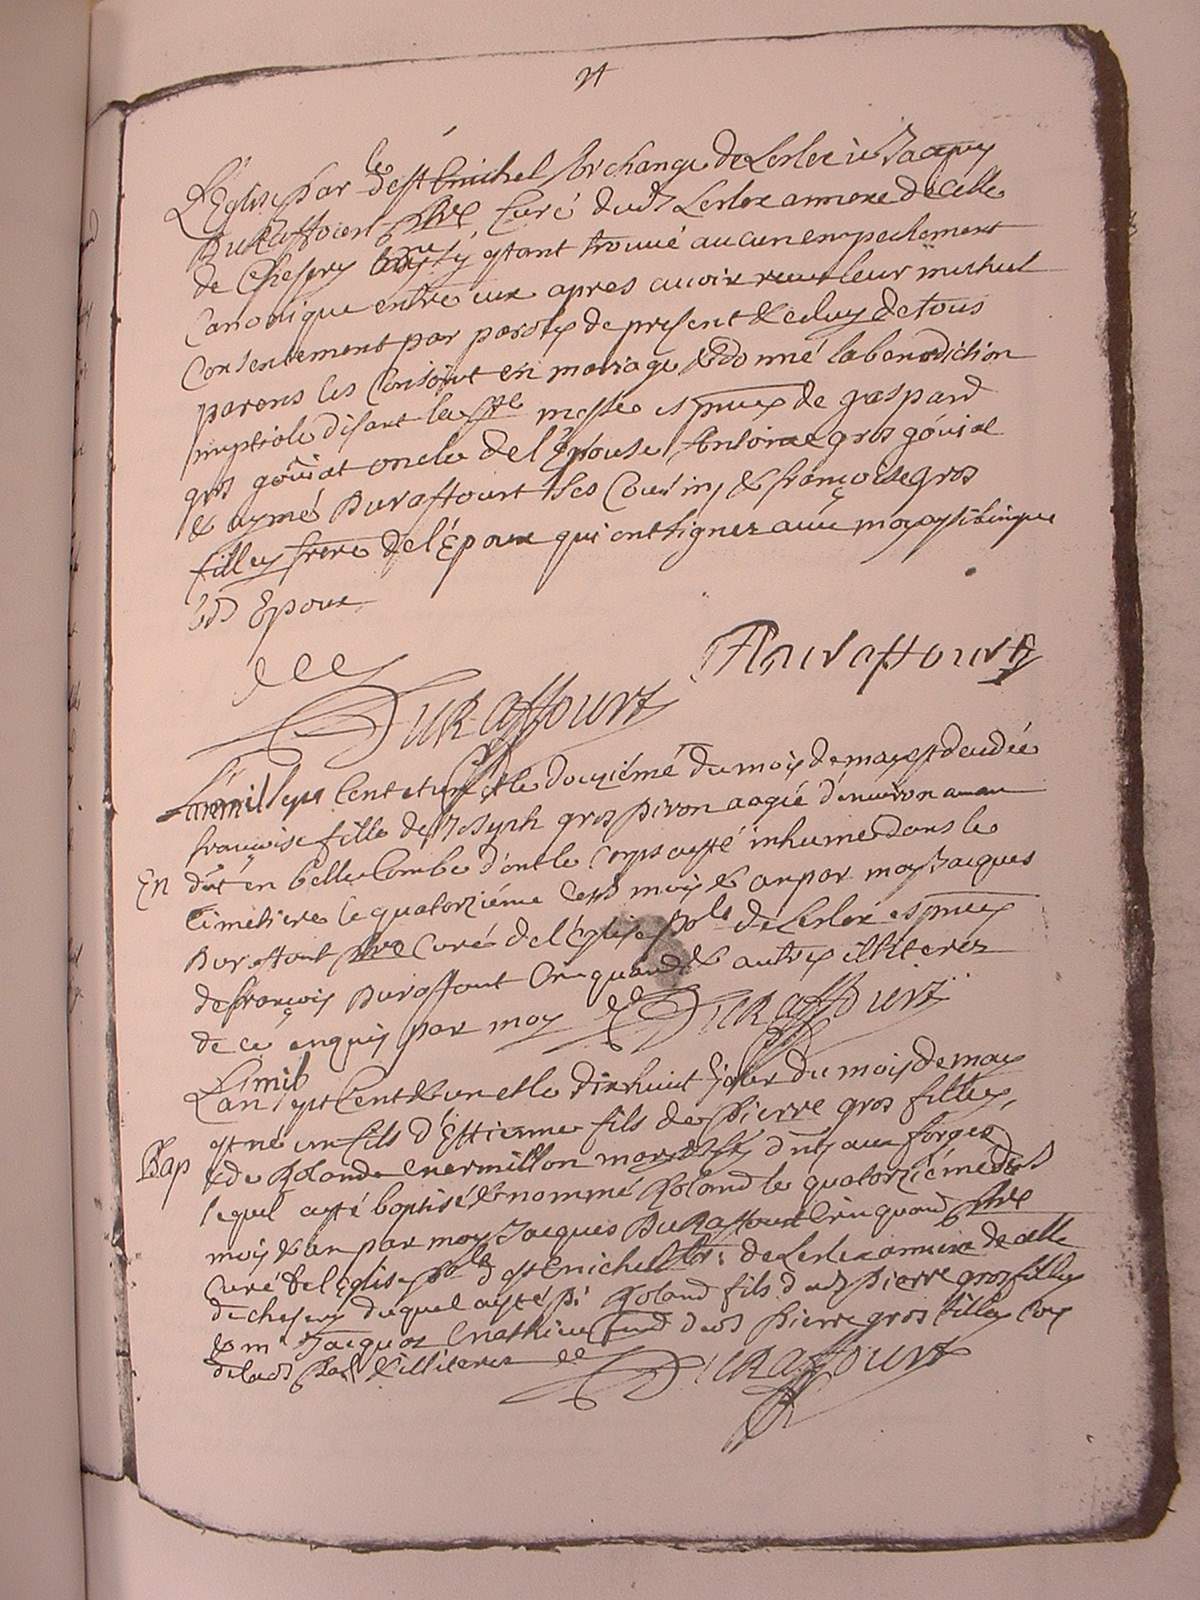 L'Eglise par le de st michel Archange de Lelex ie Jacques
Duraffourt ptre Curé dud Lelex annexe de celle
de Chesery trouvé aucun empechement
Canonique entre eux apres avoir receu leur mutuel
Consentement par paroles de present & celuy de tous
parens les Conjoint en mariage & donné la benediction
nuptiale disant la ste messe es pnces de gaspard
gros goüiat oncle de l'Epouse, Antoine gros goüiat
& aymé Duraffourt ses Cousins & françois gros
filley frere de l'Epoux qui ont signez avec moy
led Epoux
Duraffourt
Duraffourt
L'an mil sept Cent et un et le douziéme du mois de may est decedée
françoise fille de Joseph gros piron aagée d'environ un an
En
dud en belle Combe dont le Corps a esté inhumé dans le
Cimetiere le quatorziéme desd mois & an par moy Jacques
Duraffourt ptre Curé de l'Eglise de Lelex es pnces
de françois Duraffourt Cruquand & autres illiterez
de ce enquis par moy
Duraffourt
L'an mil sept Cent & un et le dixhuit du mois de may
est né un fils d'Estienne fils de Pierre gros filley,
Bap
& de Rolande Mermillon aux forges
lequel a esté baptisé & nommé Roland le quatorziéme desd
mois & an par moy Jacques Duraffourt Cruquand ptre
Curé de l'Eglise de st Michel Ar: de Lelex annexe de celle
de chesery duquel a esté p: Roland fils dud Pierre gros filley
& m: Jacquaz Mathieu dud Pierre gros filley
de lad & illiterez
Duraffourt